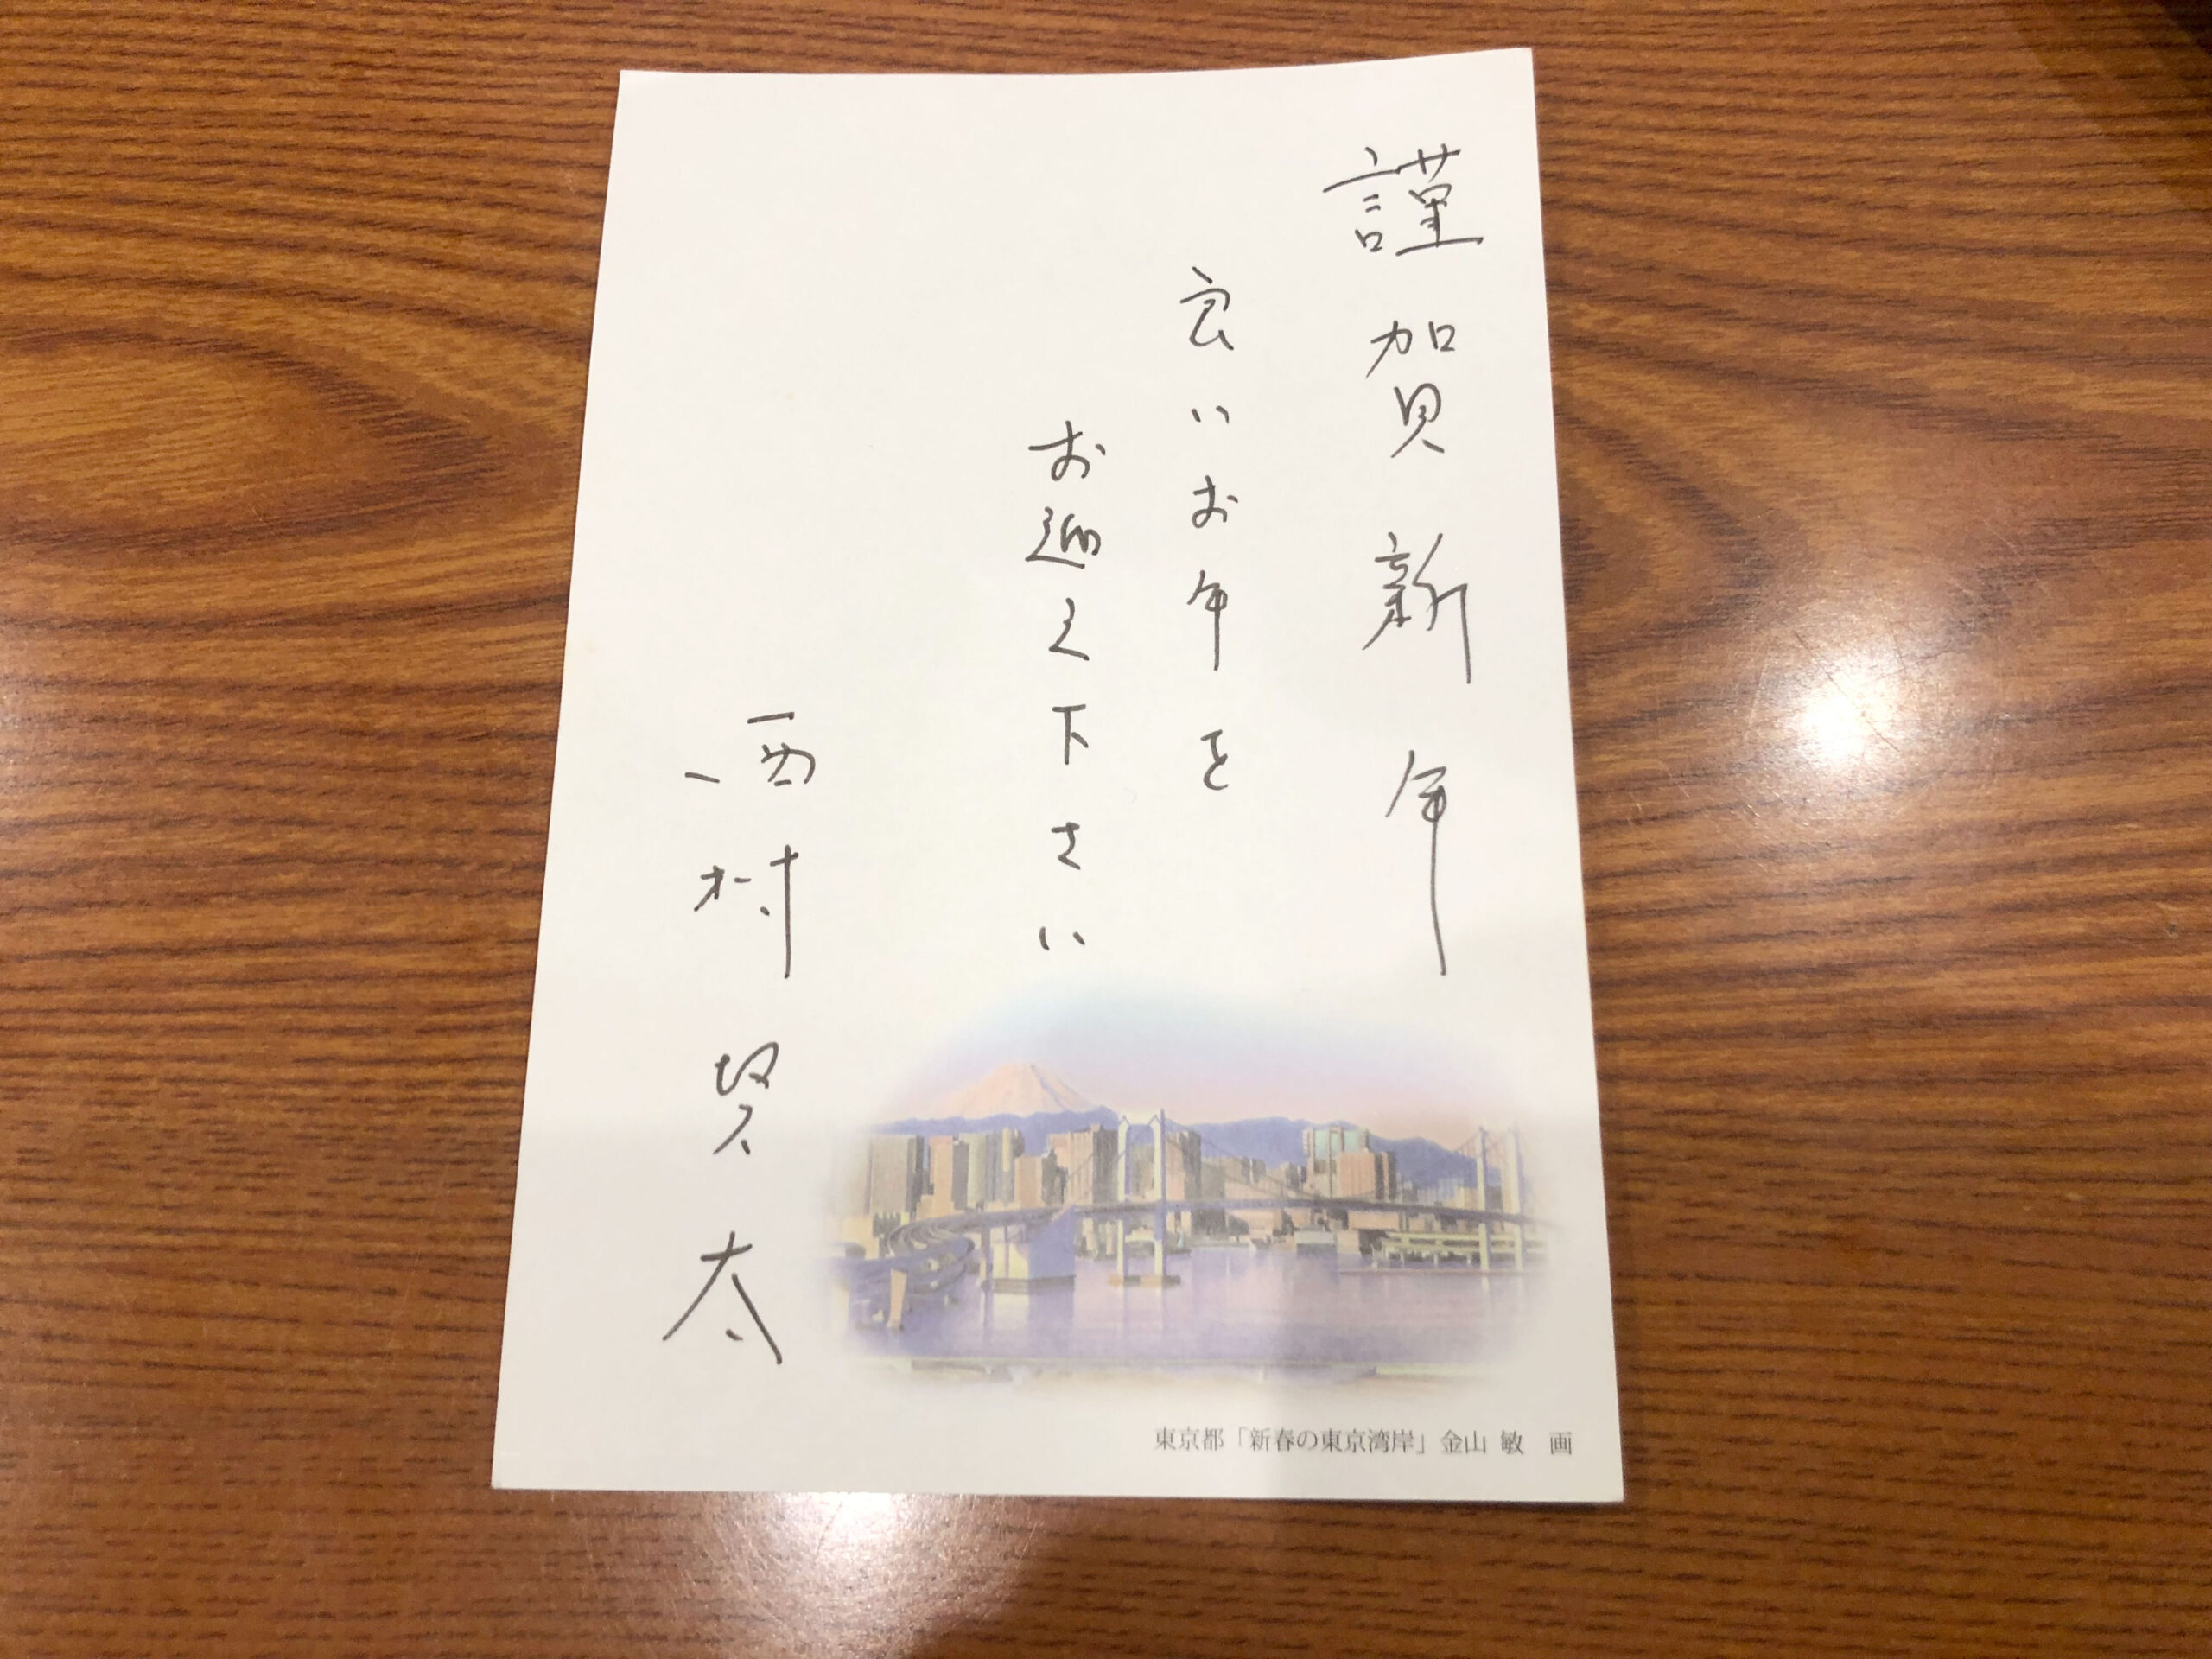 謹賀新年
良いお年を
お迎え下さい
西村賢太
東京都「新春の東京湾岸」金山 敏 画